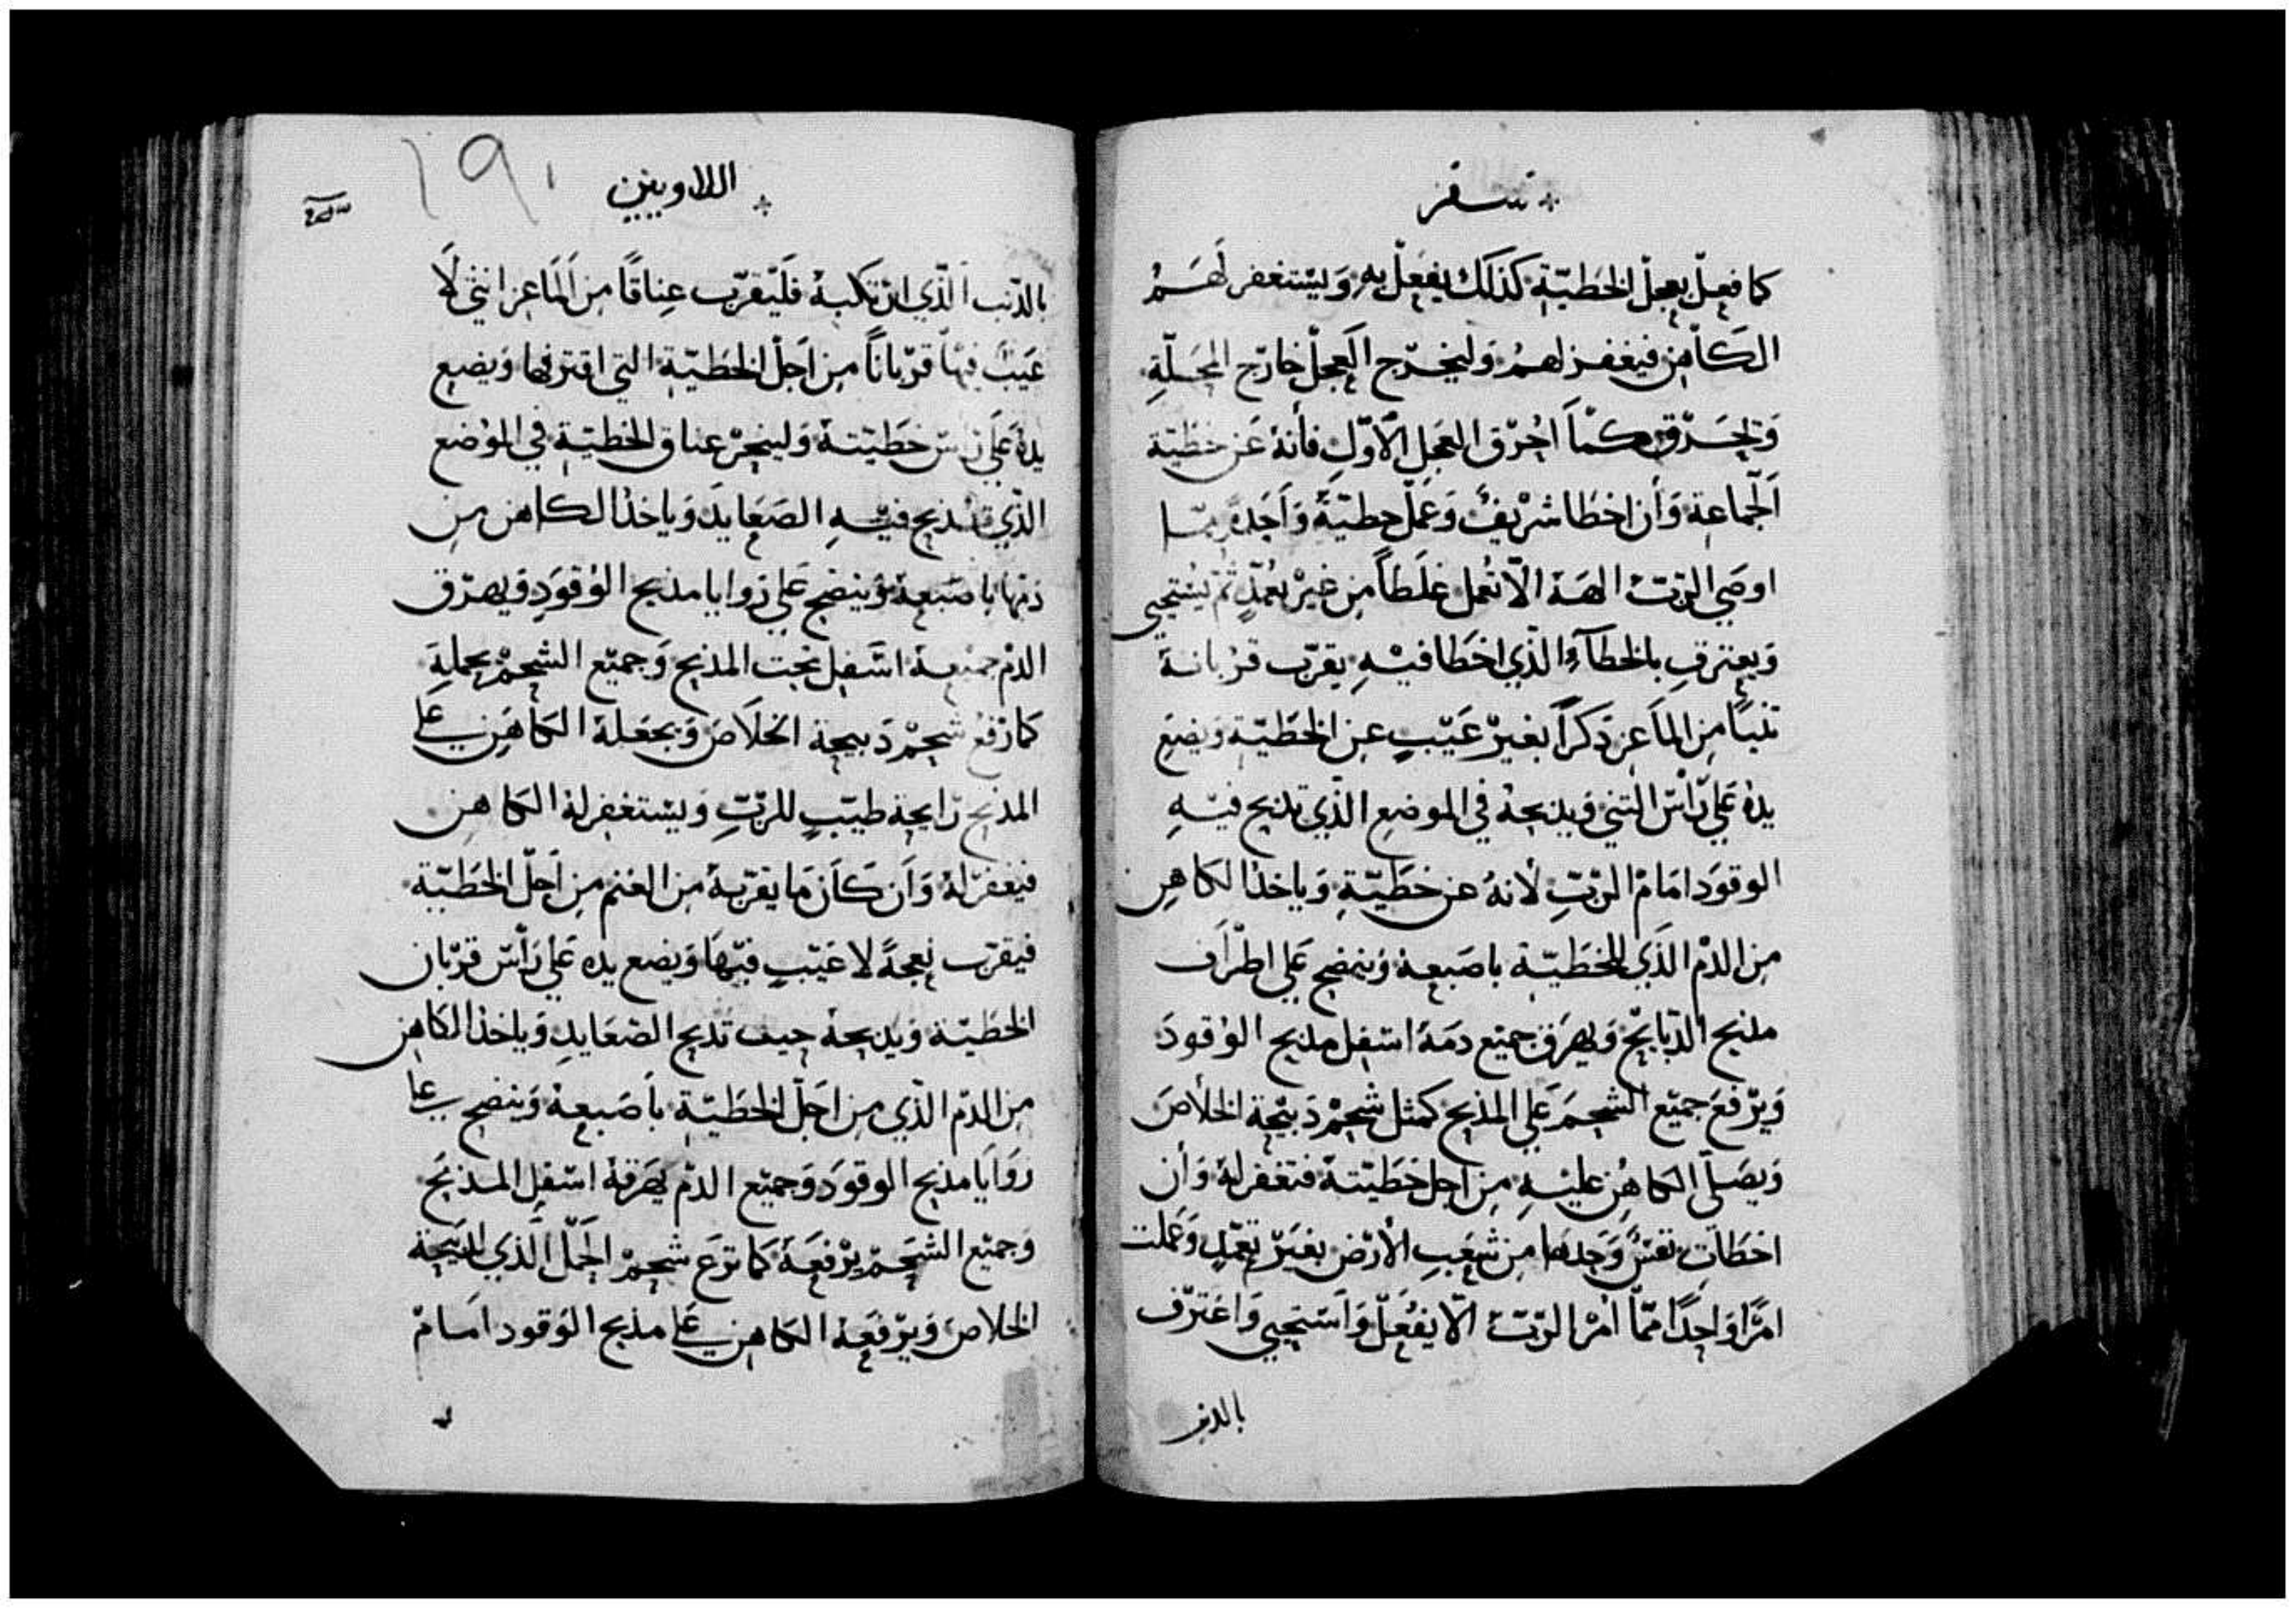 سفر
كما فعل بعجل الخطيّة كذلك يفعل به ويستغفر لهم
الكاهن فيغفر لهم وليخرج العجل خارج المحلّة
وليحرق كما احرق العجل الاوّل فأنه عن خطيّة
الجماعة وأن اخطا شريف وعمل خطيّة واحده ممّا
اوصي الربّ الهه الّا تعمل غلطاً من غير تعمّدٍ ثم يستحيي
ويعترف بالخطآء الّذي اخطا فيه يقرّب قربانه
تنيًا من الماعز دكراً بغير عيبٍ عن الخطيّة ويضع
يده علي رأس التني ويدبحه في الموضع الّذي تدبح فيه
الوقود امام الربّ لأنه عن خطيّةٍ وياخد الكاهن
من الدم الذي للخطيّة باصبعه وينضح علي اطراف
مدبح الدبايح ويهرق جميع دمه اسفل مدبح الوقود
ويرفع جميع الشحم علي المذبح كمثل شحم دبيحة الخلاص
ويصلّي الكاهن عليه من اجل خطيّته فتغفر له وأن
اخطات نفسٌ وحدها من شعب الأرض بغير تعمّدٍ وعملت
امرًا واحدًا ممّا أمر الربّ الّا يفعل واستحيي واعترف
بالدنب
اللاويين
١٩١
بالدّنب الّذي ارتكبه فليقرّب عناقًا من الماعز انثي لا
عيب فيها قربانًا من اجل الخطيّة التي اقترفها ويضع
يده علي راس خطيّته ولينحر عناق الخطيّة في الموضع
الّذي تدبح فيه الصعايد وياخد الكاهن من
دمها باصبعه وينضح علي زوايا مذبح الوقود ويهرق
الدم جميعه اسفل تحت المذبح وجميع الشحم بحمله
كما رفع شحم دبيحة الخلاص ويجعله الكاهن علي
المذبح رايحة طيّبٍ للربّ ويستغفر له الكاهن
فيغفر له وأن كان ما يقربه من الغنم من اجل الخطيّة
فيقرب نعجةً لا عيب فيها ويضع يده علي رأس قربان
الخطيّة ويدبحه حيث تدبح الصعايد وياخذ الكاهن
من الدم الّذي من اجل الخطيّة بأصبعه وينضح علي
زوايا مذبح الوقود وجميع الدم يهرقه اسفل المذبح
وجميع الشحم يرفعه كما ترع شحم الحمل الّذي لدبيحة
الخلاص ويرفعه الكاهن علي مذبح الوقود امام